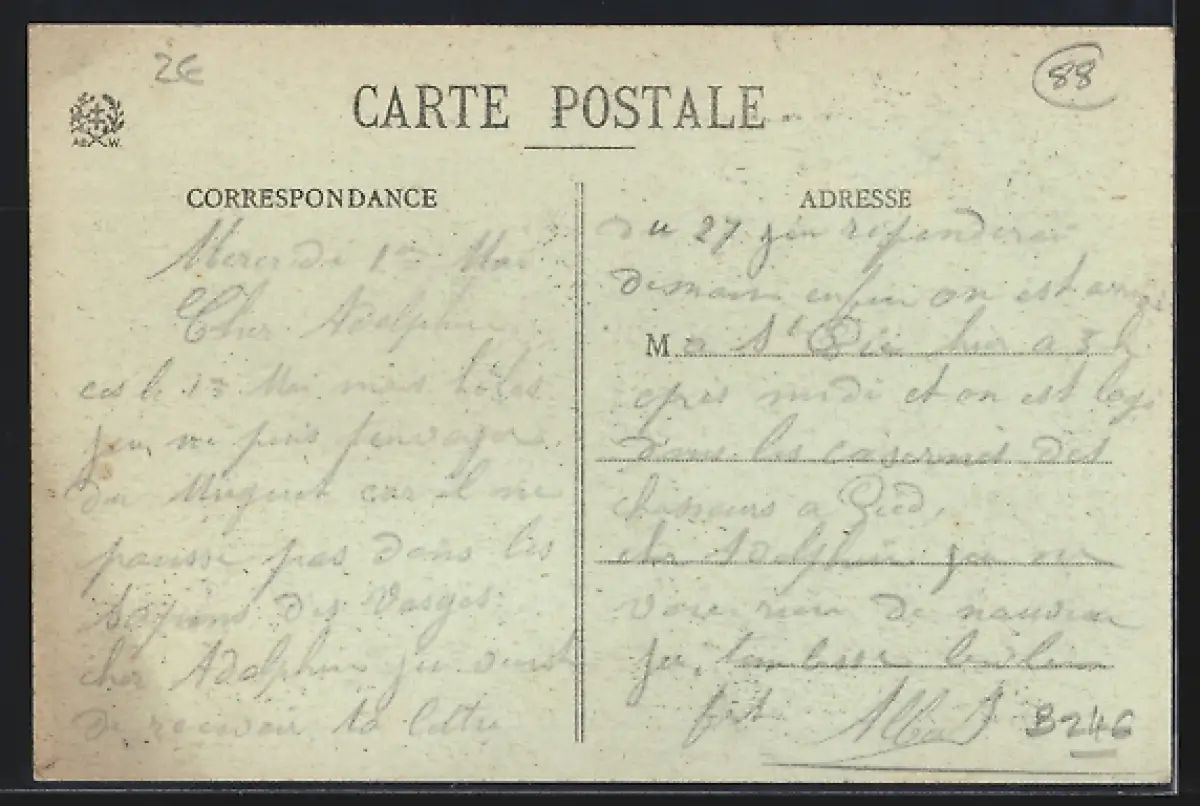 2€
88
CARTE POSTALE
AB W.
CORRESPONDANCE
Mercredi 1er Mai
Cher Adolphine
le 1er Mai mes
jeu ne puis
du Muguet car il ne
pousse pas dans les
des Vosges
cher Adolphine jeu
de recevoir ta lettre
ADRESSE
du 27 jeu reponderai
demain enfin on est arrivé
M a St Dié hier a 3 h
apres midi et on est logé
dans les casernes des
chasseurs a Pied,
cher Adolphine jeu ne
voie rien de nouveau
jeu
fort Albert
B246